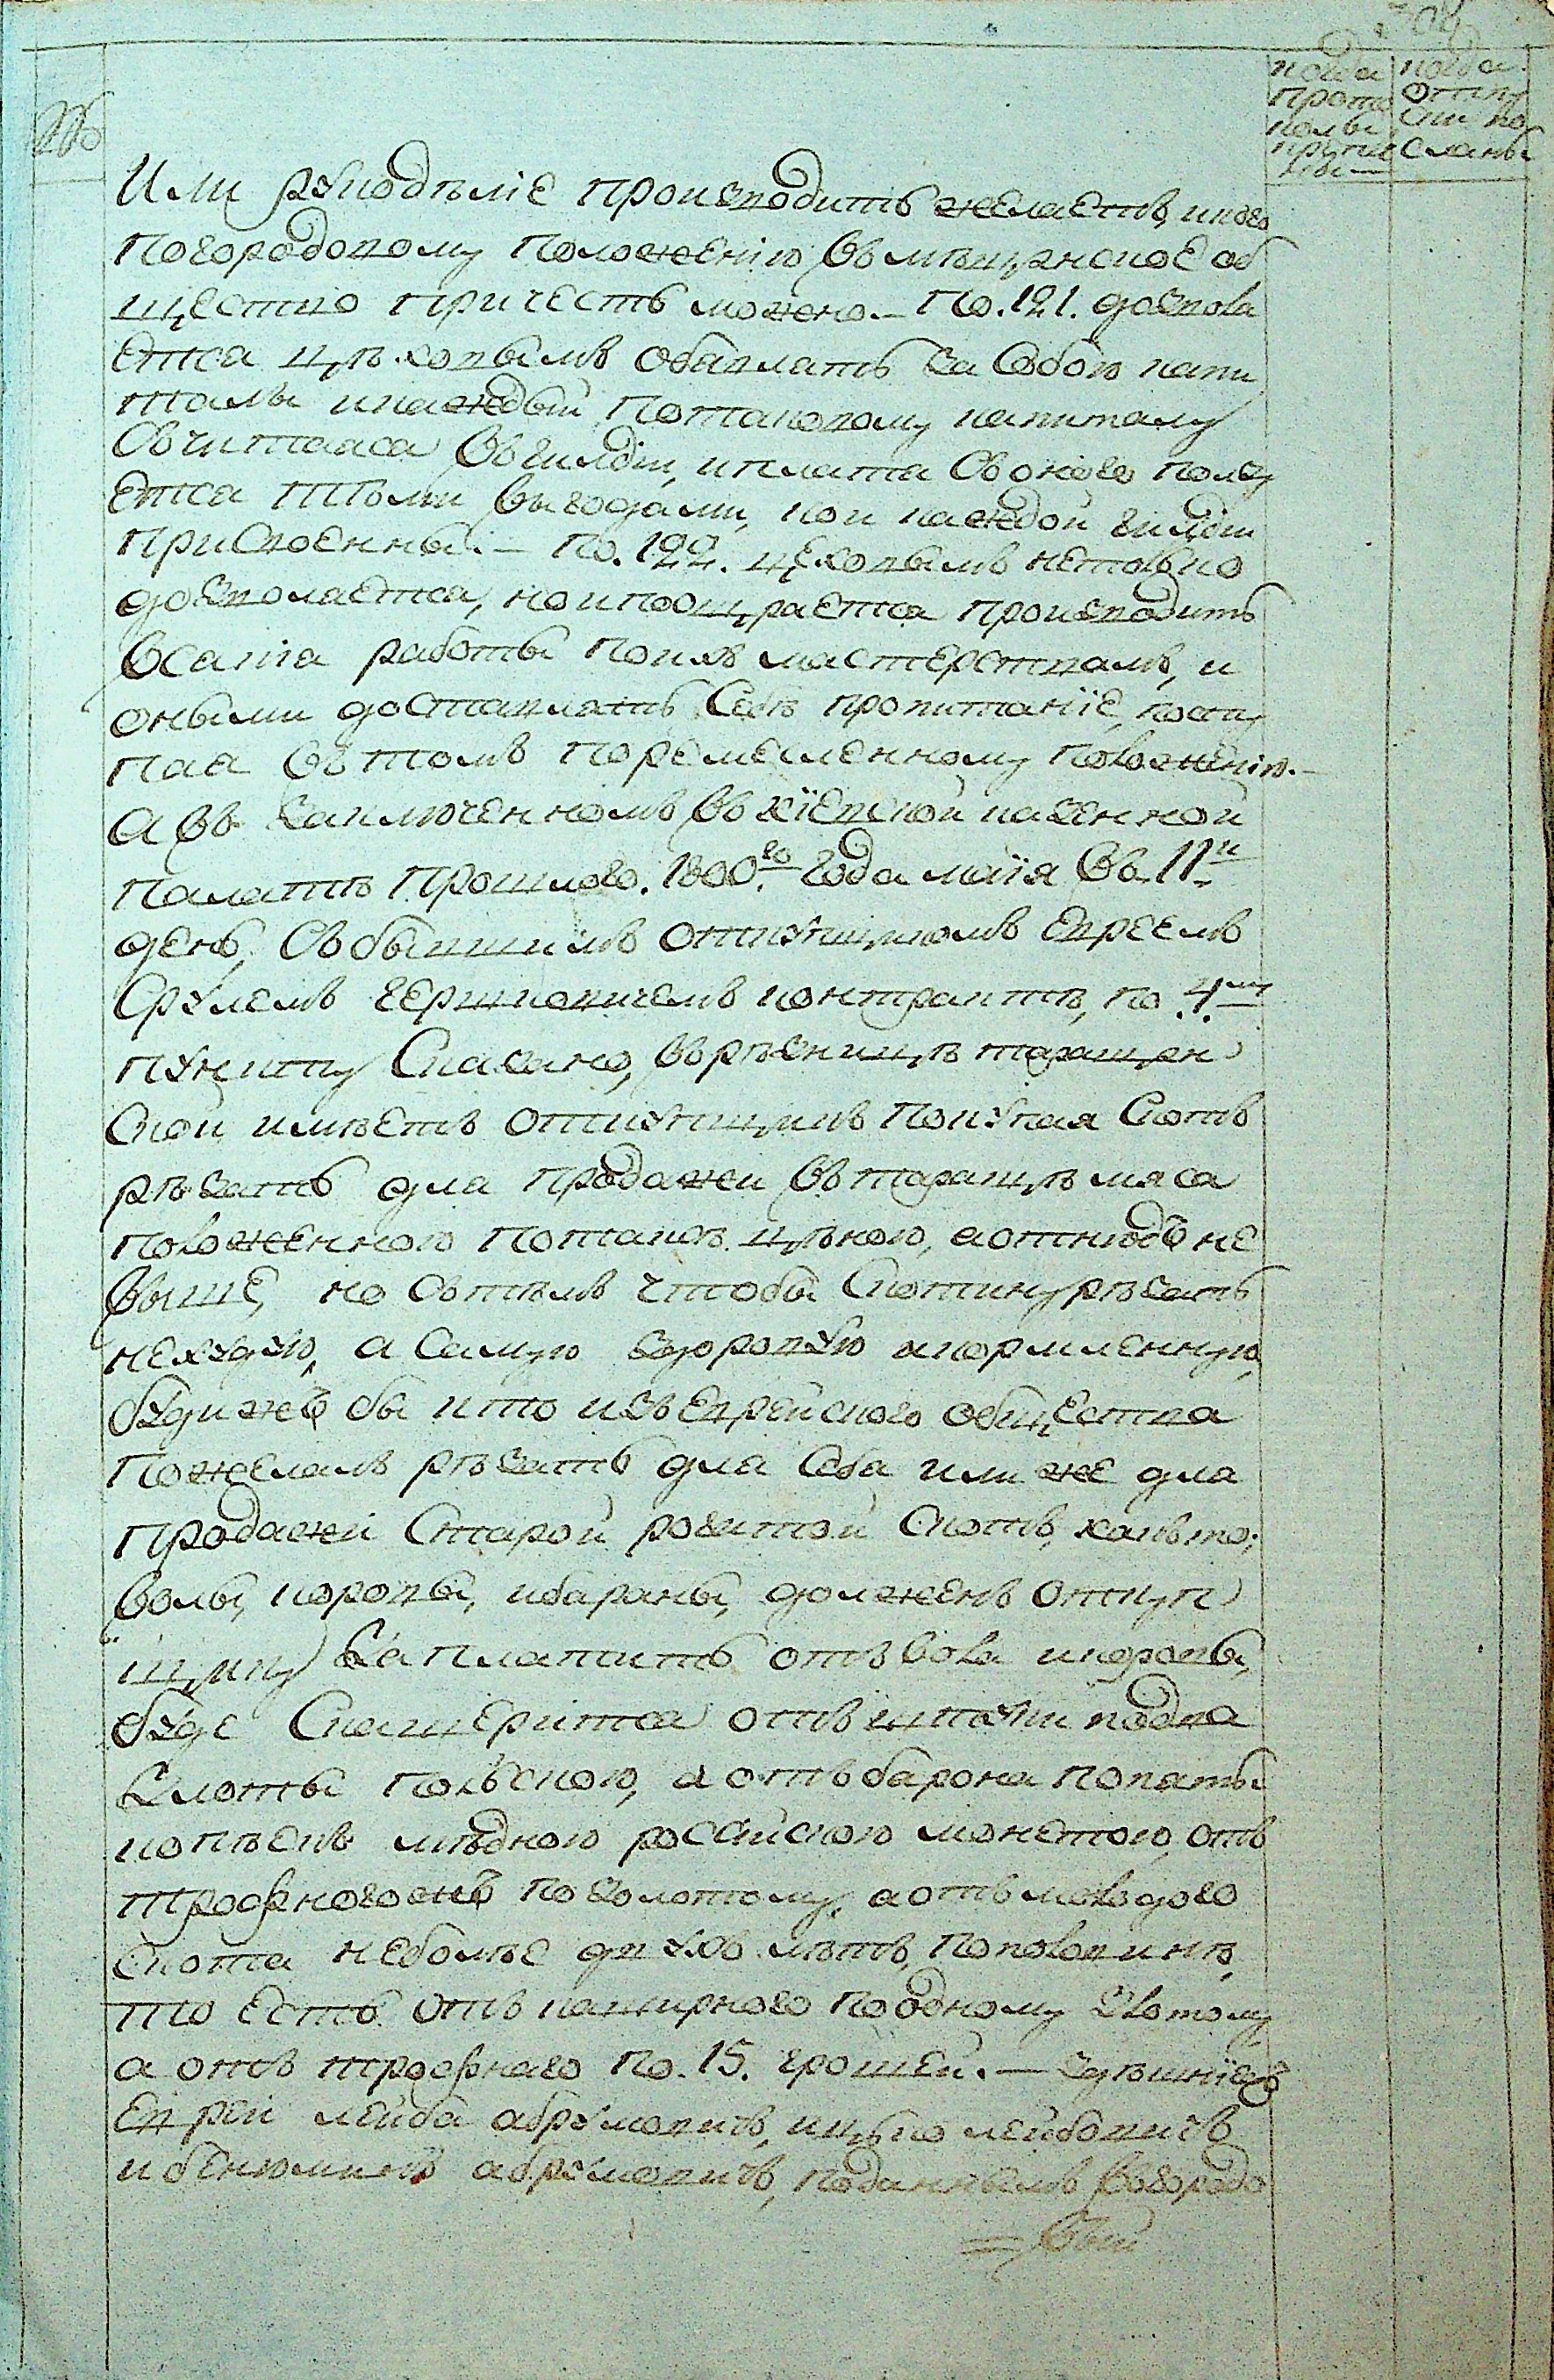 когда прото колы при пи саны —
когда отпу ски по сланы
Или рукодѣлiе производить желаетъ, иного
погородовому положенiю въ мѣщанское об
щество причесть можно. — По. 121. дозволя
ется цѣховымъ объявлять за собою капи
талы икаждый потаковому капиталу
считаася въ гилдiи, иплатя съ онаго полз
ется тѣми выгодами, кои каждой гилдiи
присвоенны. — По. 122. цеховымъ нетолько
дозволяется, ноипоощряется производить
всякiя работы по ихъ мастерствамъ, и
оными доставлять себѣ пропитанïе, посту
пая въ томъ поремесленному положенiю. —
А въ заключенномъ въ кïевской казенной
палатѣ прошлого. 1800.го года маiя въ 11й
день, съ бывшимъ откупщикомъ евреемъ
Срулемъ гершковичемъ контрактѣ, по .4.му
пункту сказано, въ рѣзницѣ таращан
ской имѣетъ откупщикъ покупая скотъ
рѣзать для продажи въ таращѣ мяса
положенною потаксѣ цѣною, аотнюдъ не
выше, но съ тѣмъ чтобы скотину рѣзать
нехудую, а самую здоровую икормленную,
будижъ бы кто изъ еврейского общества
пожелалъ рѣзать для себя или же для
продажи старой рогатой скотъ, какъто:
волы, коровы, ибараны, долженъ откуп
щику заплатить отъ вола икоровы,
буде скашерится отъ штуки подва
злоты польскою, а отъ барана попяти
копѣекъ мѣдною россiйскою монетою, отъ
трефногожъ позолотому, аотъ молодого
скота неболѣе двухъ лѣтъ, пополовинѣ,
то есть отъ кашерного поодному злотому
а отъ трефнаго по. 15. грошей. — здѣшнiежъ
евреи лейба абрумовичъ, ицько лейбовичъ
и бенюминъ абрумовичъ, поданнымъ въ городо
= вый